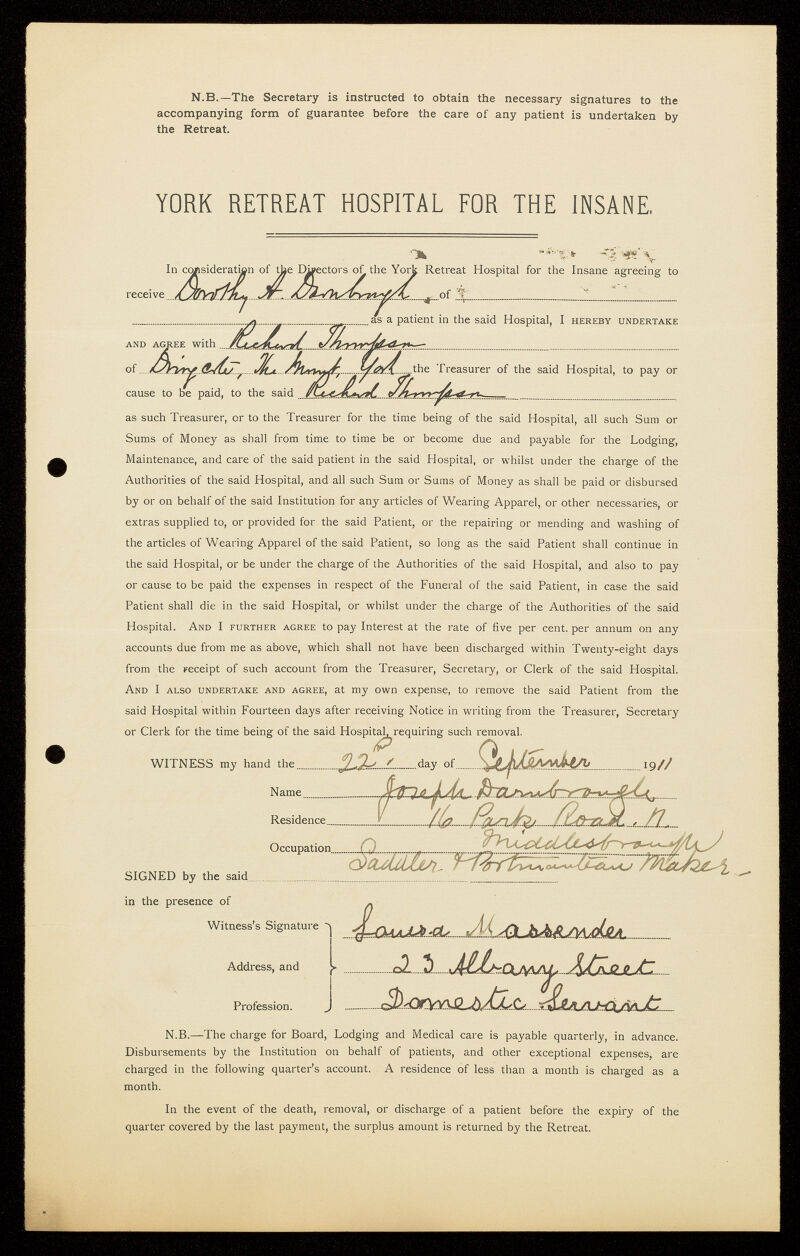 N.B.—The Secretary is instructed to obtain the necessary signatures to the
accompanying form of guarantee before the care of any patient is undertaken by
the Retreat.
YORK RETREAT HOSPITAL FOR THE INSANE.
In consideration of the Directors of the York Retreat Hospital for the Insane agreeing to
receive Dorothy A. Darnbrough of
as a patient in the said Hospital, I HEREBY UNDERTAKE
AND AGREE with Richard Thompson
of Dringcote, The Mount, York the Treasurer of the said Hospital, to pay or
cause to be paid, to the said Richard Thompson
as such Treasurer, or to the Treasurer for the time being of the said Hospital, all such Sum or
Sums of Money as shall from time to time be or become due and payable for the Lodging,
Maintenance, and care of the said patient in the said Hospital, or whilst under the charge of the
Authorities of the said Hospital, and all such Sum or Sums of Money as shall be paid or disbursed
by or on behalf of the said Institution for any articles of Wearing Apparel, or other necessaries, or
extras supplied to, or provided for the said Patient, or the repairing or mending and washing of
the articles of Wearing Apparel of the said Patient, so long as the said Patient shall continue in
the said Hospital, or be under the charge of the Authorities of the said Hospital, and also to pay
or cause to be paid the expenses in respect of the Funeral of the said Patient, in case the said
Patient shall die in the said Hospital, or whilst under the charge of the Authorities of the said
Hospital. AND I FURTHER AGREE to pay Interest at the rate of five per cent. per annum on any
accounts due from me as above, which shall not have been discharged within Twenty-eight days
from the receipt of such account from the Treasurer, Secretary, or Clerk of the said Hospital.
AND I ALSO UNDERTAKE AND AGREE, at my own expense, to remove the said Patient from the
said Hospital within Fourteen days after receiving Notice in writing from the Treasurer, Secretary
or Clerk for the time being of the said Hospital, requiring such removal.
WITNESS my hand the 22 day of September 1911
Name Joseph Darnbrough
Residence 16 Park Road. N.
Middlesbrough
Occupation Saddler & Portmanteau Maker
SIGNED by the said
in the presence of
Witness's Signature Louisa Massender
Address, and 23 Albany Street
Profession. Domestic Servant
N.B.—The charge for Board, Lodging and Medical care is payable quarterly, in advance.
Disbursements by the Institution on behalf of patients, and other exceptional expenses, are
charged in the following quarter's account. A residence of less than a month is charged as a
month.
In the event of the death, removal, or discharge of a patient before the expiry of the
quarter covered by the last payment, the surplus amount is returned by the Retreat.